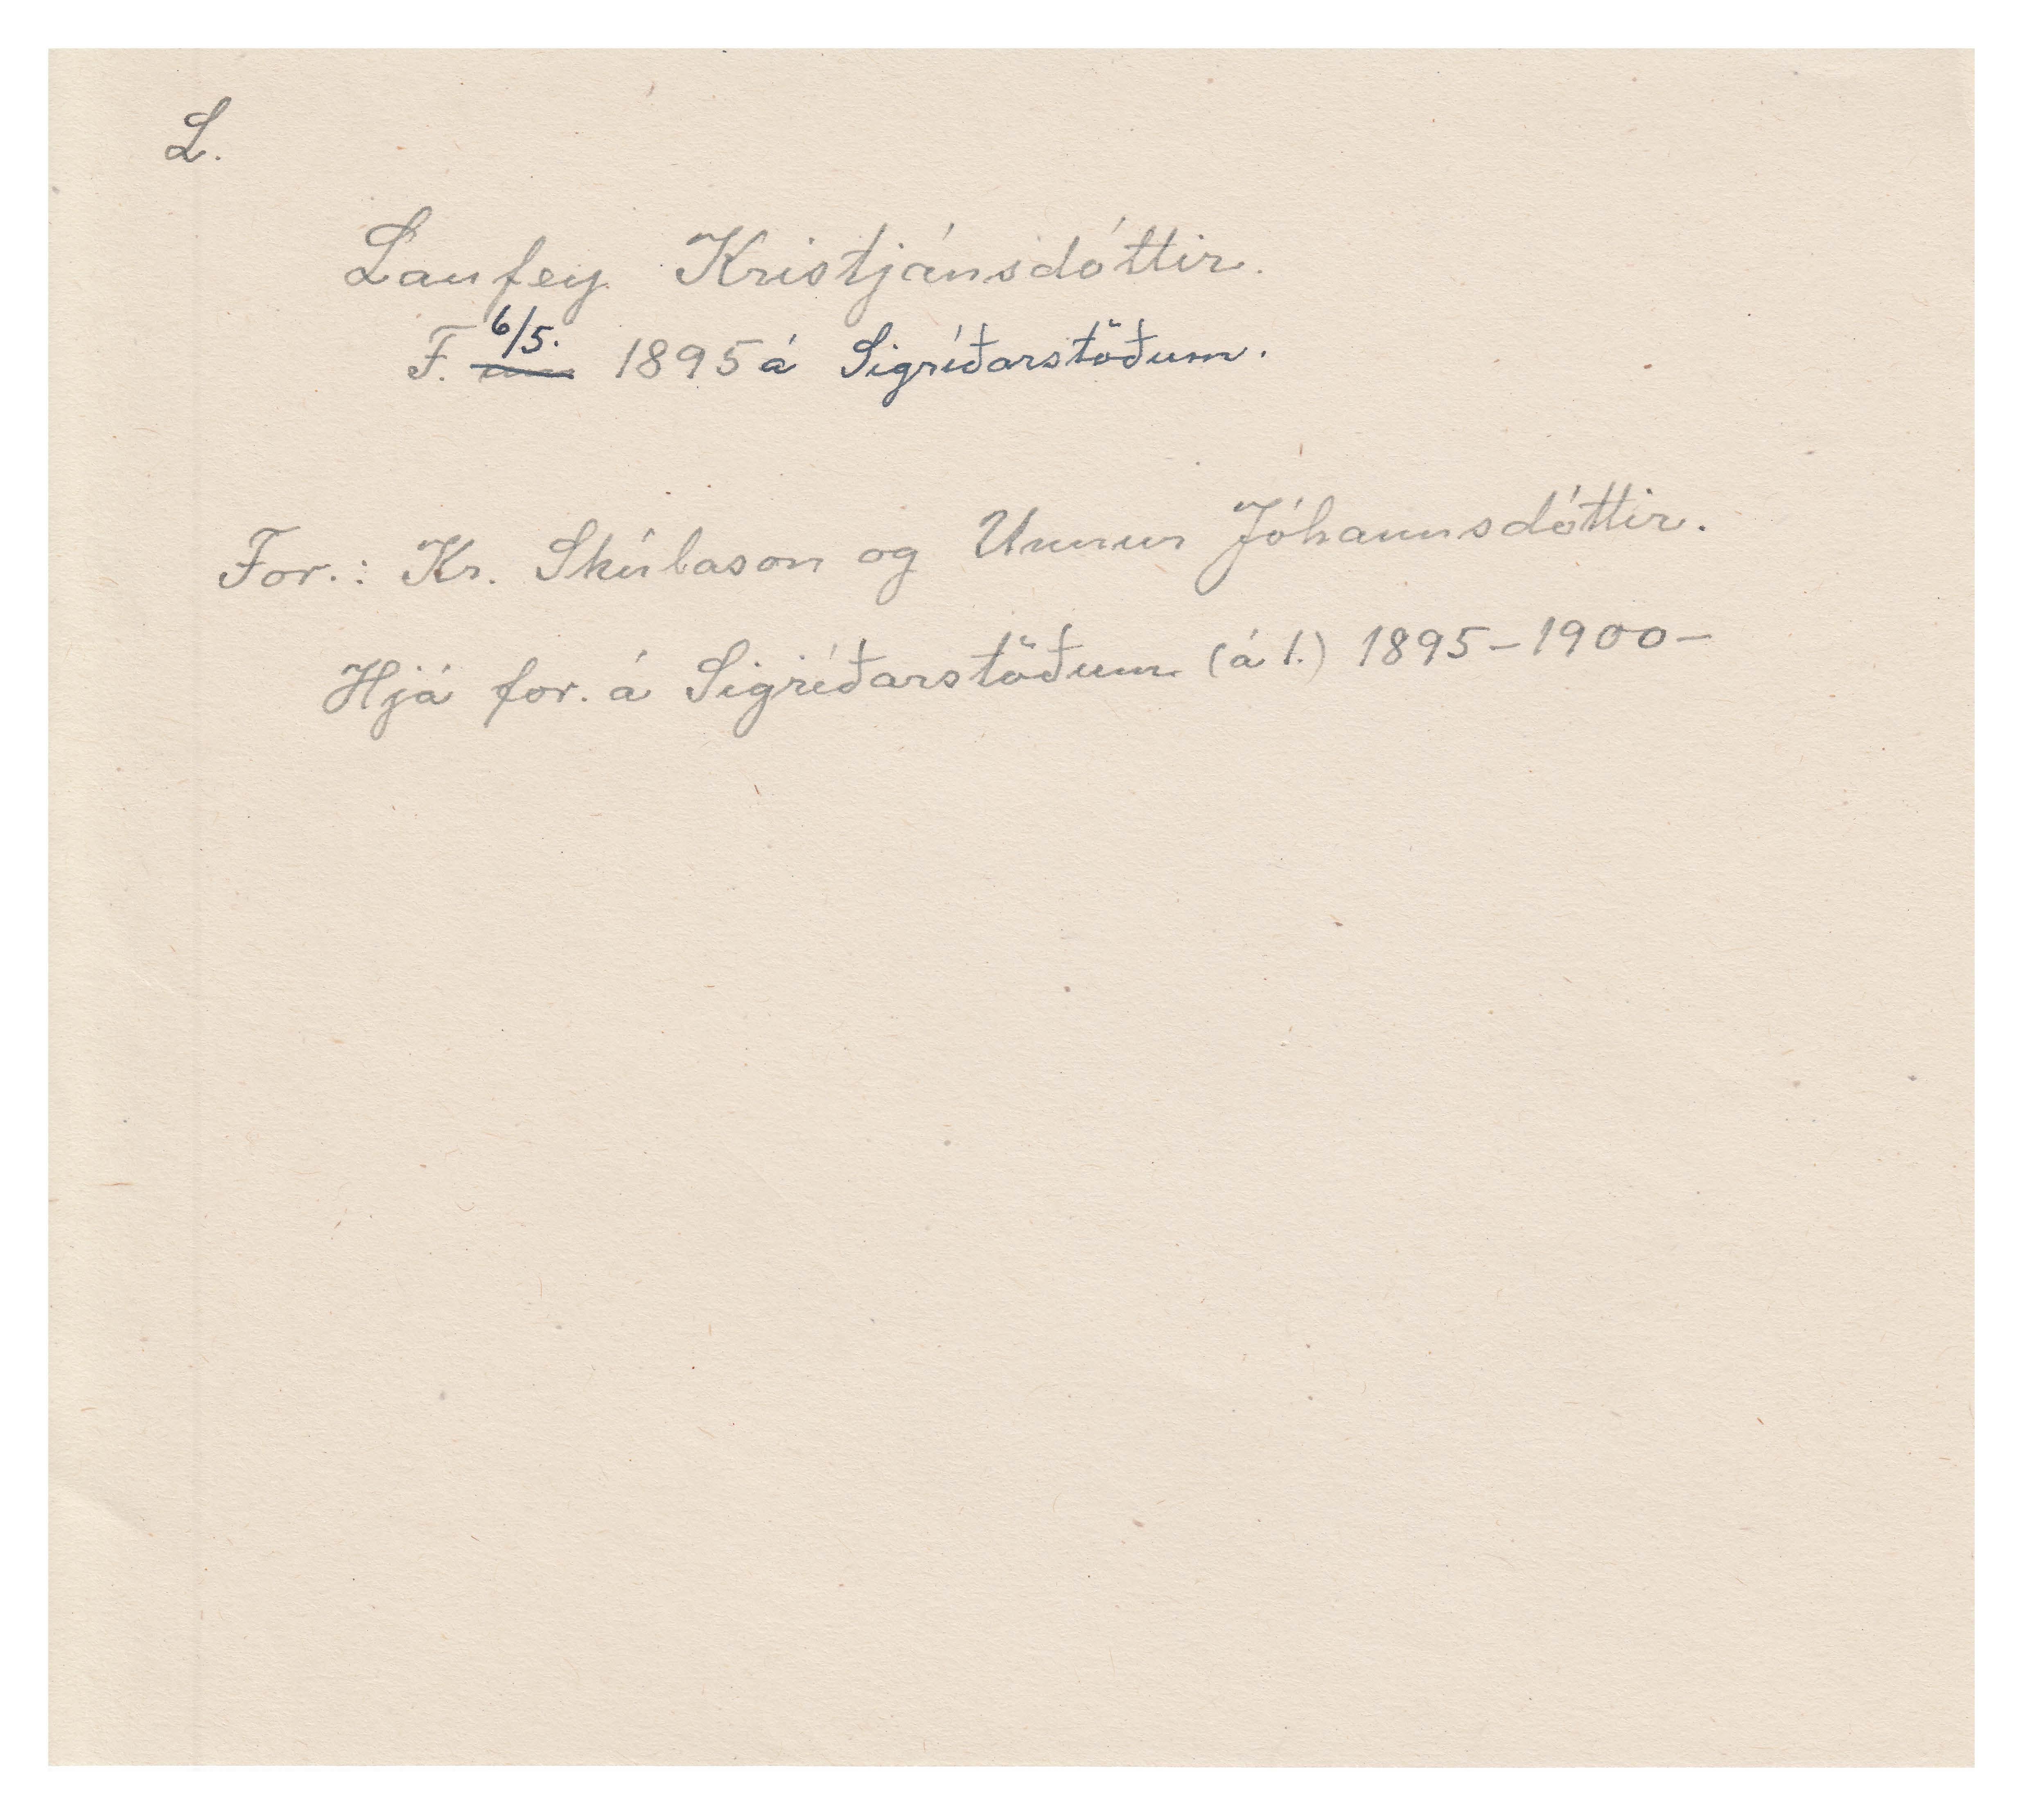 L.
Laufey Kristjánsdóttir.
F. 6/5. 1895 á Sigríðarstöðum.
For.: Kr. Skúlason og Unnur Jóhannsdóttir.
Hjá for. á Sigríðarstöðum (á 1.) 1895-1900-